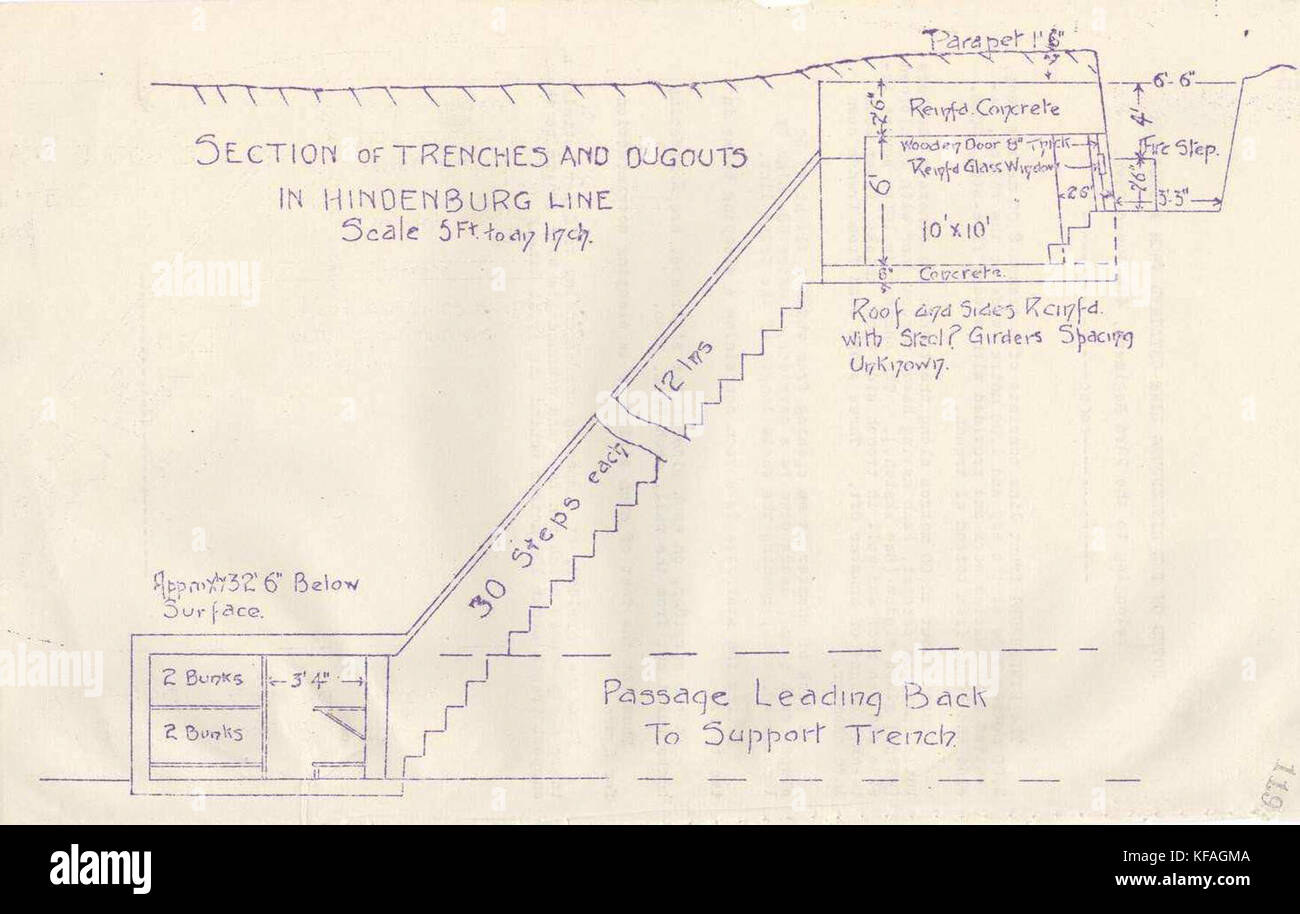 Parapet 1' 6"
6'-6"
2'6"
Reinfd. Concrete
4'
Wooden Door 8" Thick
Fire Step.
Reinfd Glass Window
6'
2'6"
2'6"
3'.3"
10' x 10'
6"
Concrete.
SECTION OF TRENCHES AND DUGOUTS
IN HINDENBURG LINE
Scale 5 Ft. to an Inch.
Roof and Sides Reinfd.
with Steel? Girders Spacing
Unknown.
12 Ins
30 Steps each
32' 6" Below
Surface.
2 Bunks
3' 4"
2 Bunks
Passage Leading Back
To Support Trench
119
alamy
Image ID: KFAGMA
www.alamy.com